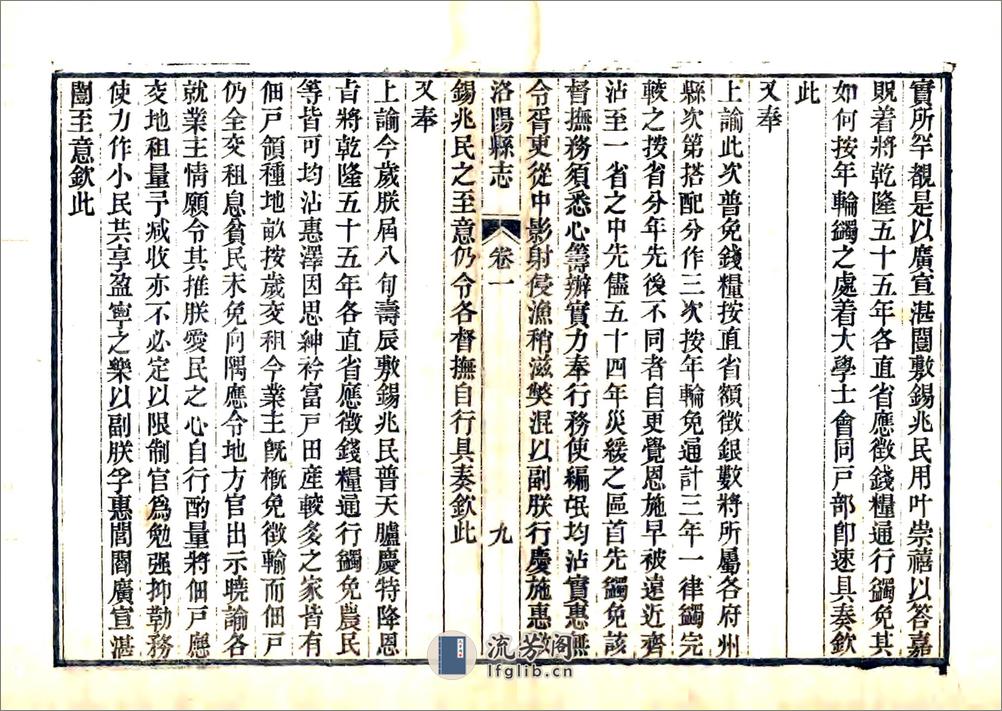 實所罕覯是以廣宣湛闓敷錫兆民用叶崇禧以答嘉
既着將乾隆五十五年各直省應徵錢糧通行蠲免其
如何按年輪蠲之處着大學士會同戸部卽速具奏欽
此
又奉
上諭此次普免錢糧按直省額徵銀數將所屬各府州
縣次第搭配分作三次按年輪免通計三年一律蠲完
較之按省分年先後不同者自更覺恩施早被遠近齊
沾至一省之中先儘五十四年災緩之區首先蠲免該
督撫務須悉心籌辦實力奉行務使編氓均沾實惠無
令胥吏從中影射侵漁稍滋獘混以副朕行慶施惠敷
錫兆民之至意仍令各督撫自行具奏欽此
洛陽縣志 卷一 九
又奉
上諭今歲朕屆八旬壽辰敷錫兆民普天臚慶特降恩
旨將乾隆五十五年各直省應徵錢糧通行蠲免農民
等皆可均沾惠澤因思紳衿富戸田産較多之家皆有
佃戸領種地畝按歲交租今業主旣槪免徵輸而佃戸
仍全交租息貧民未免向隅應令地方官出示曉諭各
就業主情願令其推朕愛民之心自行酌量將佃戸應
交地租量予減收亦不必定以限制官爲勉强抑勒務
使力作小民共享盈寧之樂以副朕孚惠閭閻廣宣湛
闓至意欽此
流芳阁
lfglib.cn